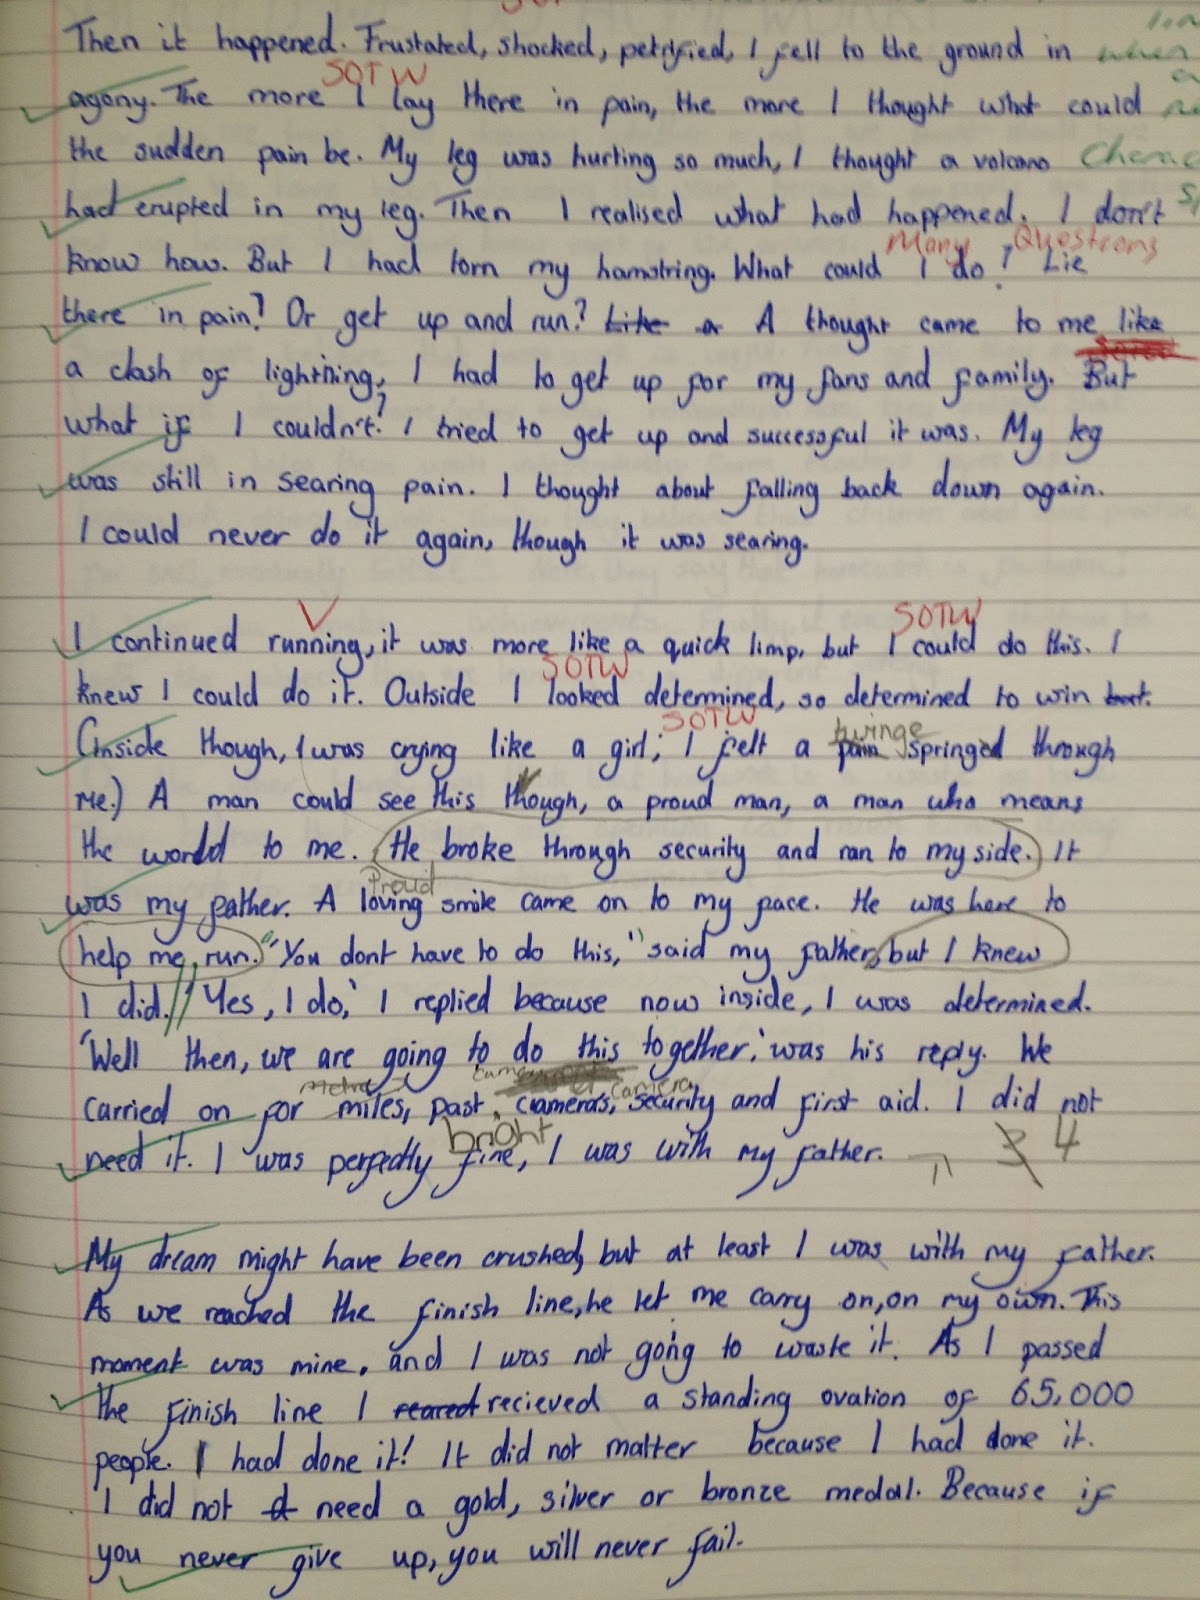 Then it happened. Frustated, shocked, petrified, I fell to the ground in when
SOTW
agony. The more I lay there in pain, the more I thought what could
the sudden pain be. My leg was hurting so much, I thought a volcano
had erupted in my leg. Then I realised what had happened. I don't
Many Questions
know how. But I had torn my hamstring. What could I do? Lie
there in pain? Or get up and run? Like a A thought came to me like
a clash of lightning, I had to get up for my fans and family. But
what if I couldn't? I tried to get up and successful it was. My leg
was still in searing pain. I thought about falling back down again.
I could never do it again, though it was searing.
SOTW
I continued running, it was more like a quick limp, but I could do this. I
SOTW
knew I could do it. Outside I looked determined, so determined to win
SOTW
twinge
(Inside though, I was crying like a girl; I felt a pain springed through
me.) A man could see this though, a proud man, a man who means
the world to me. He broke through security and ran to my side. It
Proud
was my father. A loving smile came on to my face. He was here to
help me, run. "You dont have to do this," said my father, but I knew
I did.// 'Yes, I do,' I replied because now inside, I was determined.
'Well then, we are going to do this together.' was his reply. We
metres camera
carried on for miles, past, cameras, security and first aid. I did not
bright
need it. I was perfectly fine, I was with my father.
3 4
My dream might have been crushed, but at least I was with my father.
As we reached the finish line, he let me carry on, on my own. This
moment was mine, and I was not going to waste it. As I passed
the finish line I recieved a standing ovation of 65,000
people. I had done it! It did not matter because I had done it.
I did not need a gold, silver or bronze medal. Because if
you never give up, you will never fail.